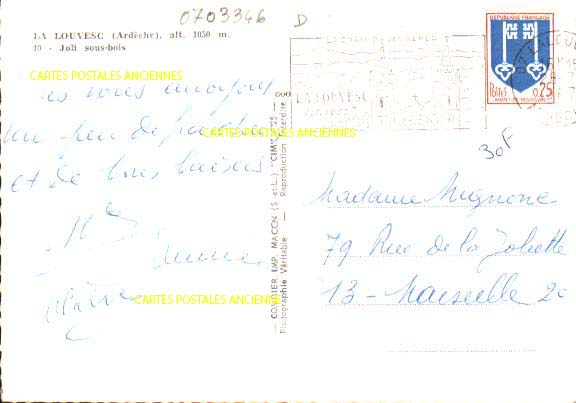 0703346 D
LA LOUVESC (Ardèche), alt. 1050 m.
10 - Joli sous-bois
CARTES POSTALES ANCIENNES
vous envoyons
un peu de
CARTES POSTALES ANCIENNES
et de bons baisers
CARTES POSTALES ANCIENNES
COMBIER IMP. MACON (S.-et-L.) "CIM"
Photographie Véritable — Reproduction Interdite
LA LOUVESC
RÉPUBLIQUE FRANÇAISE
Postes 0,25
MONT-DE-MARSAN
30F
Madame Mignone
79 Rue de la Joliette
13 - Marseille 20